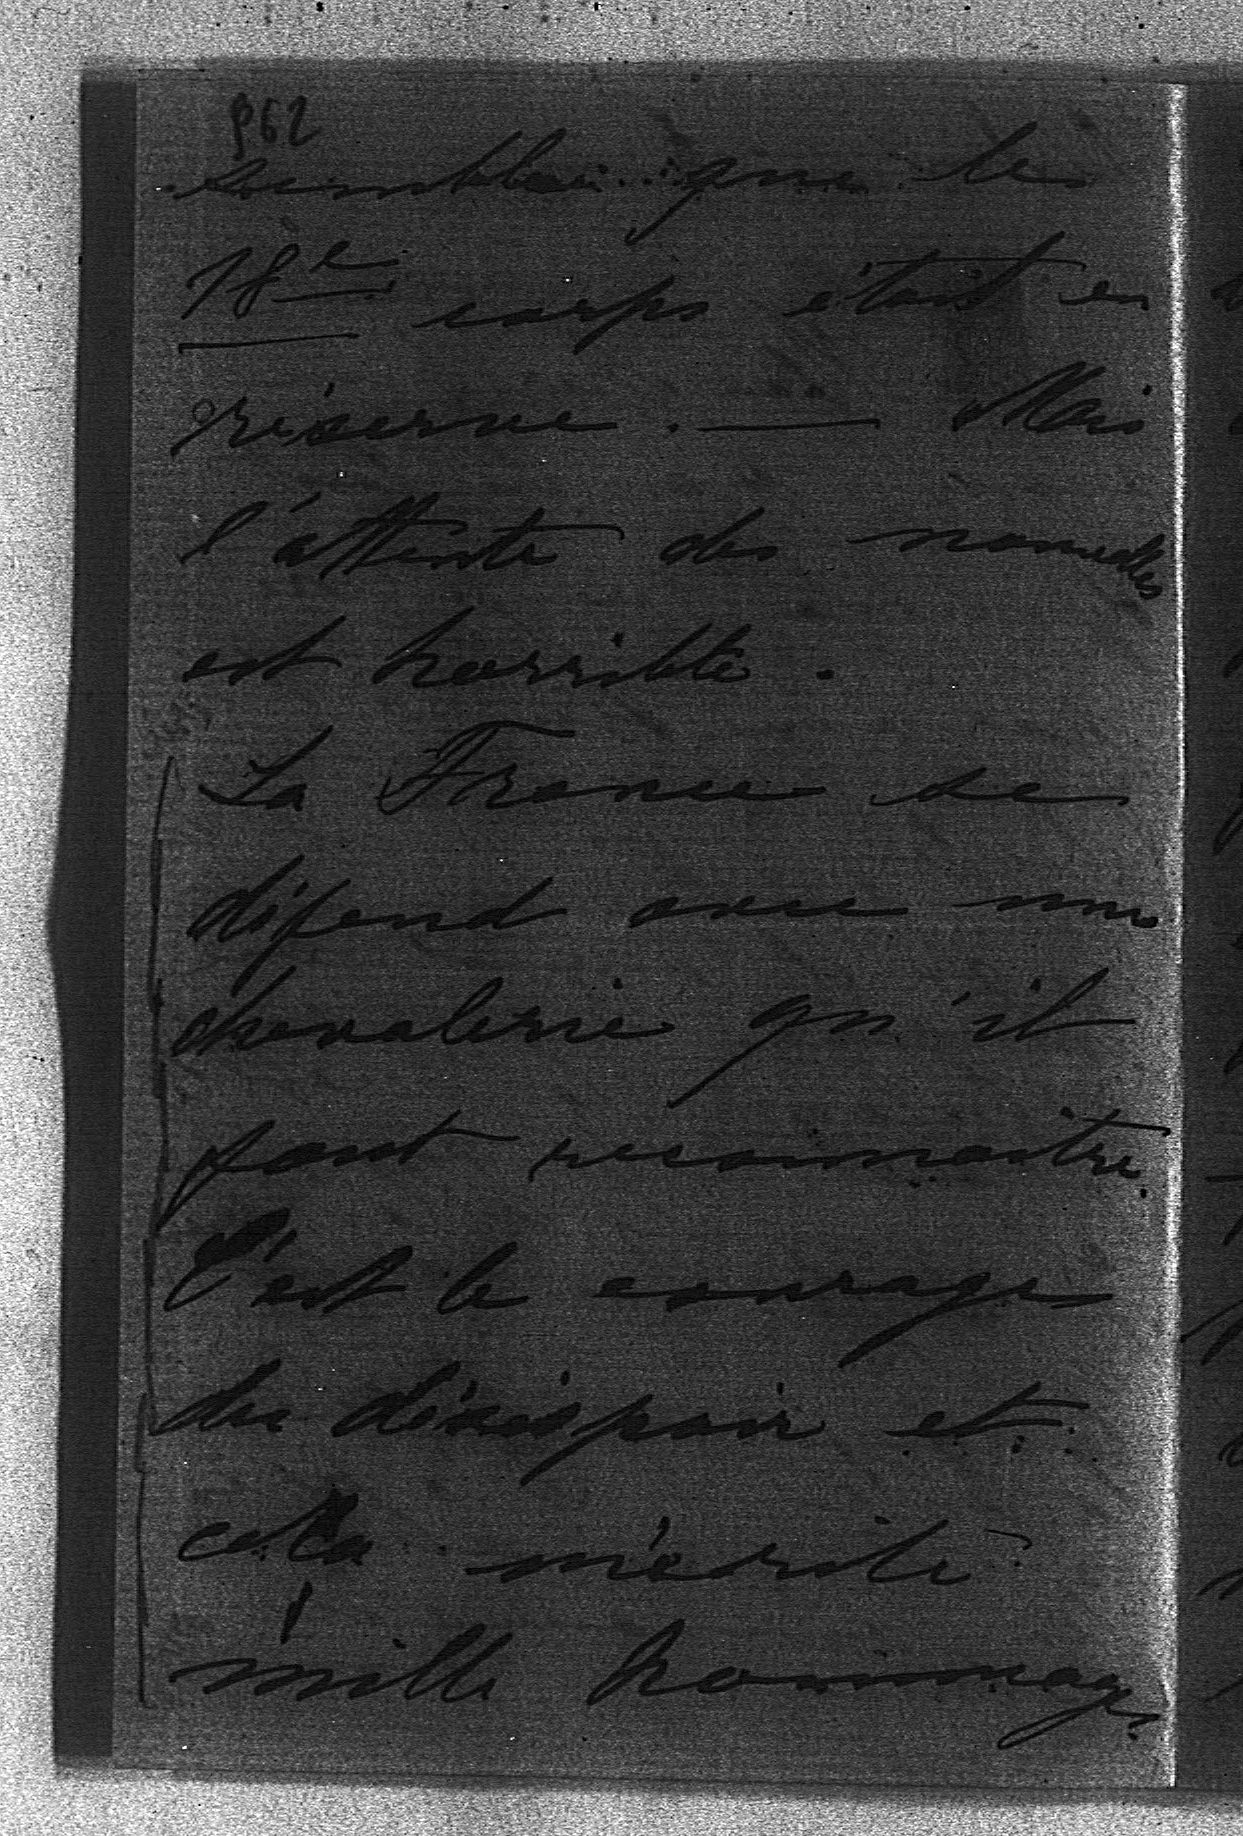 962
semble que le
18e corps était en
réserve. — Mais
l'attente des nouvelles
est horrible.
La France se
défend avec une
chevalerie qu'il
faut reconnaitre.
C'est le courage
du désespoir et
cela mérite
mille hommages